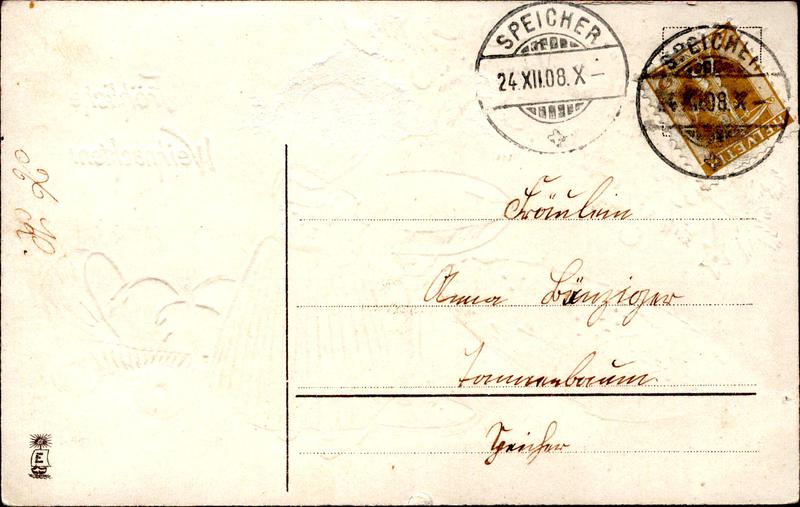 SPEICHER
24.XII.08.X–
SPEICHER
24.XII.08.X–
HELVETIA
Fröhliche
Weihnachten
Fräulein
Anna Bänziger
Tannenbaum
Speicher
E